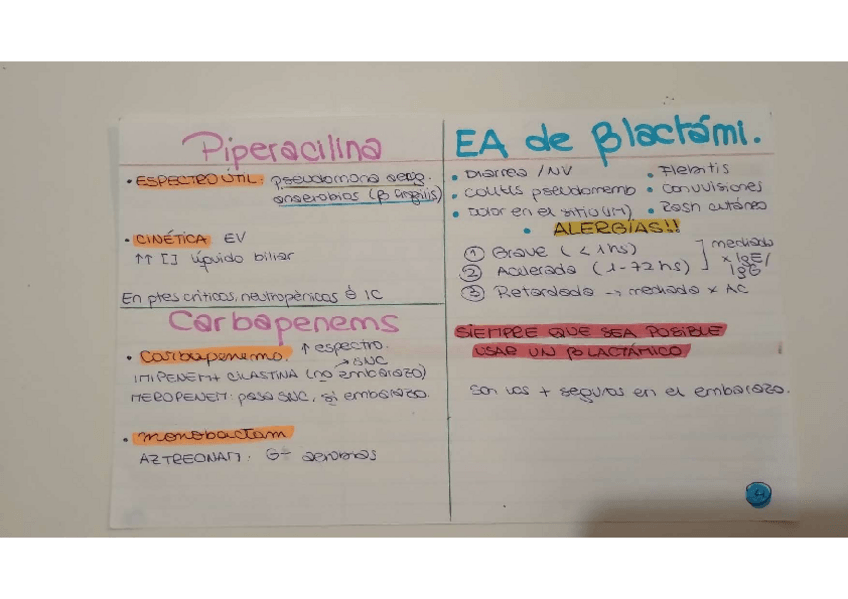 Piperacilina
• ESPECTRO ÚTIL: pseudomona aerug.
anaerobios (β fragilis)
• CINÉTICA EV
↑↑ [] líquido biliar
En ptes críticos, neutropénicos é IC
Carbapenems
• Carbapenems. ↑ espectro.
→ SNC
IMIPENEM + CILASTINA (no embarazo)
MEROPENEM: pasa SNC, si embarazo.
• Monobactam
AZTREONAM: G- aerobios
EA de βlactámi.
• Diarrea / NV
• Colitis pseudomemb
• Dolor en el sitio (IM)
• Flebitis
• Convulsiones
• Rash cutáneo
• ALERGÍAS!!
① Grave (< 1 hs)
② Acelerada (1-72 hs)
mediado
x IgE/
IgG
③ Retardada → mediada x AC
SIEMPRE QUE SEA POSIBLE
USAR UN βLACTÁMICO
Son los + seguros en el embarazo.